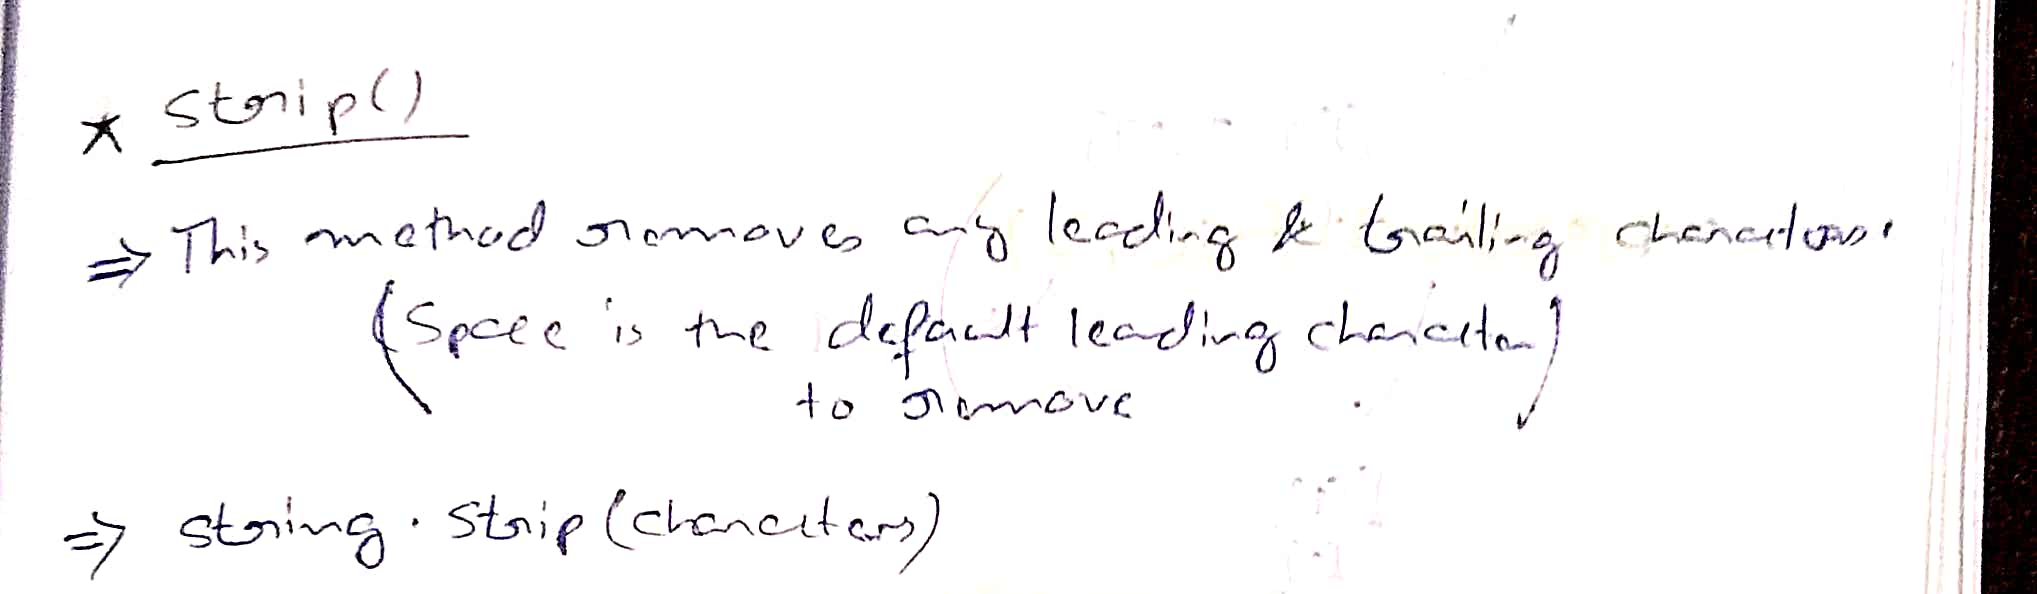 * strip()
⇒ This method removes any leading & trailing characters.
(Space is the default leading character)
to remove
⇒ string.strip(characters)